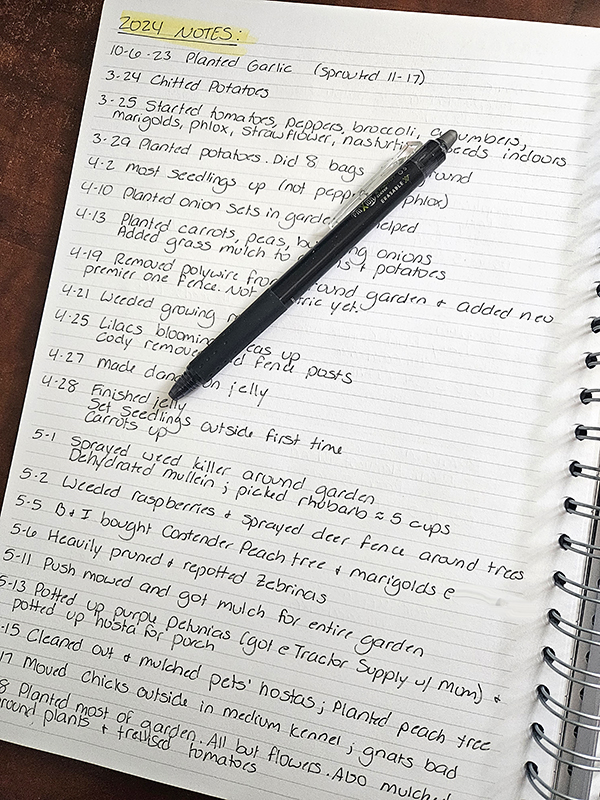 2024 NOTES:
10-6-23 Planted Garlic (sprouted 11-17)
3-24 Chitted Potatoes
3-25 Started tomatoes, peppers, broccoli, cucumbers,
marigolds, phlox, strawflower, seeds indoors
3-29 Planted potatoes. Did 8 bags
4-2 most seedlings up (not phlox)
4-10 Planted onion sets in helped
4-13 Planted carrots, peas, onions
Added grass mulch to & potatoes
4-19 Removed polywire garden & added new
premier one fence. Not yet.
4-21 Weeded growing
4-25 Lilacs blooming up
Cody fence posts
4-27 made jelly
4-28 Finished jelly
Set seedlings outside first time
Carrots up
5-1 Sprayed weed killer around garden
Dehydrated mullein; picked rhubarb ≈ 5 cups
5-2 Weeded raspberries & sprayed deer fence around trees
5-5 B & I bought Contender Peach tree & marigolds e
5-6 Heavily pruned & repotted Zebrinas
5-11 Push mowed and got mulch for entire garden
5-13 Potted up purpu petunias (got e Tractor Supply w/ Mum) &
potted up hosta for porch
-15 Cleaned out & mulched pets' hostas; Planted peach tree
17 Moved Chicks outside in medium kennel; gnats bad
8 Planted most of garden. All but flowers. Also mulched
round plants & trellised tomatoes
FriXion
ERASABLE